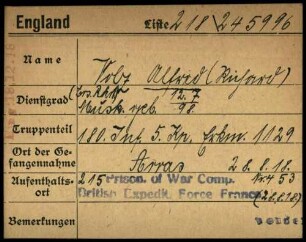 England Liste 218/245996
Name Volz Alfred (Richard)
Dienstgrad Ers. Rkt. 12.7.
Musk. geb. 98.
Truppenteil 180. Inf. 5. Kp. Erkm. 1129
Ort der Ge-
fangennahme Arras 28.8.18.
Aufenthalts-
ort 215 Prison. of War Comp. 53
British Expedit. Force France (28.8.18)
Bemerkungen